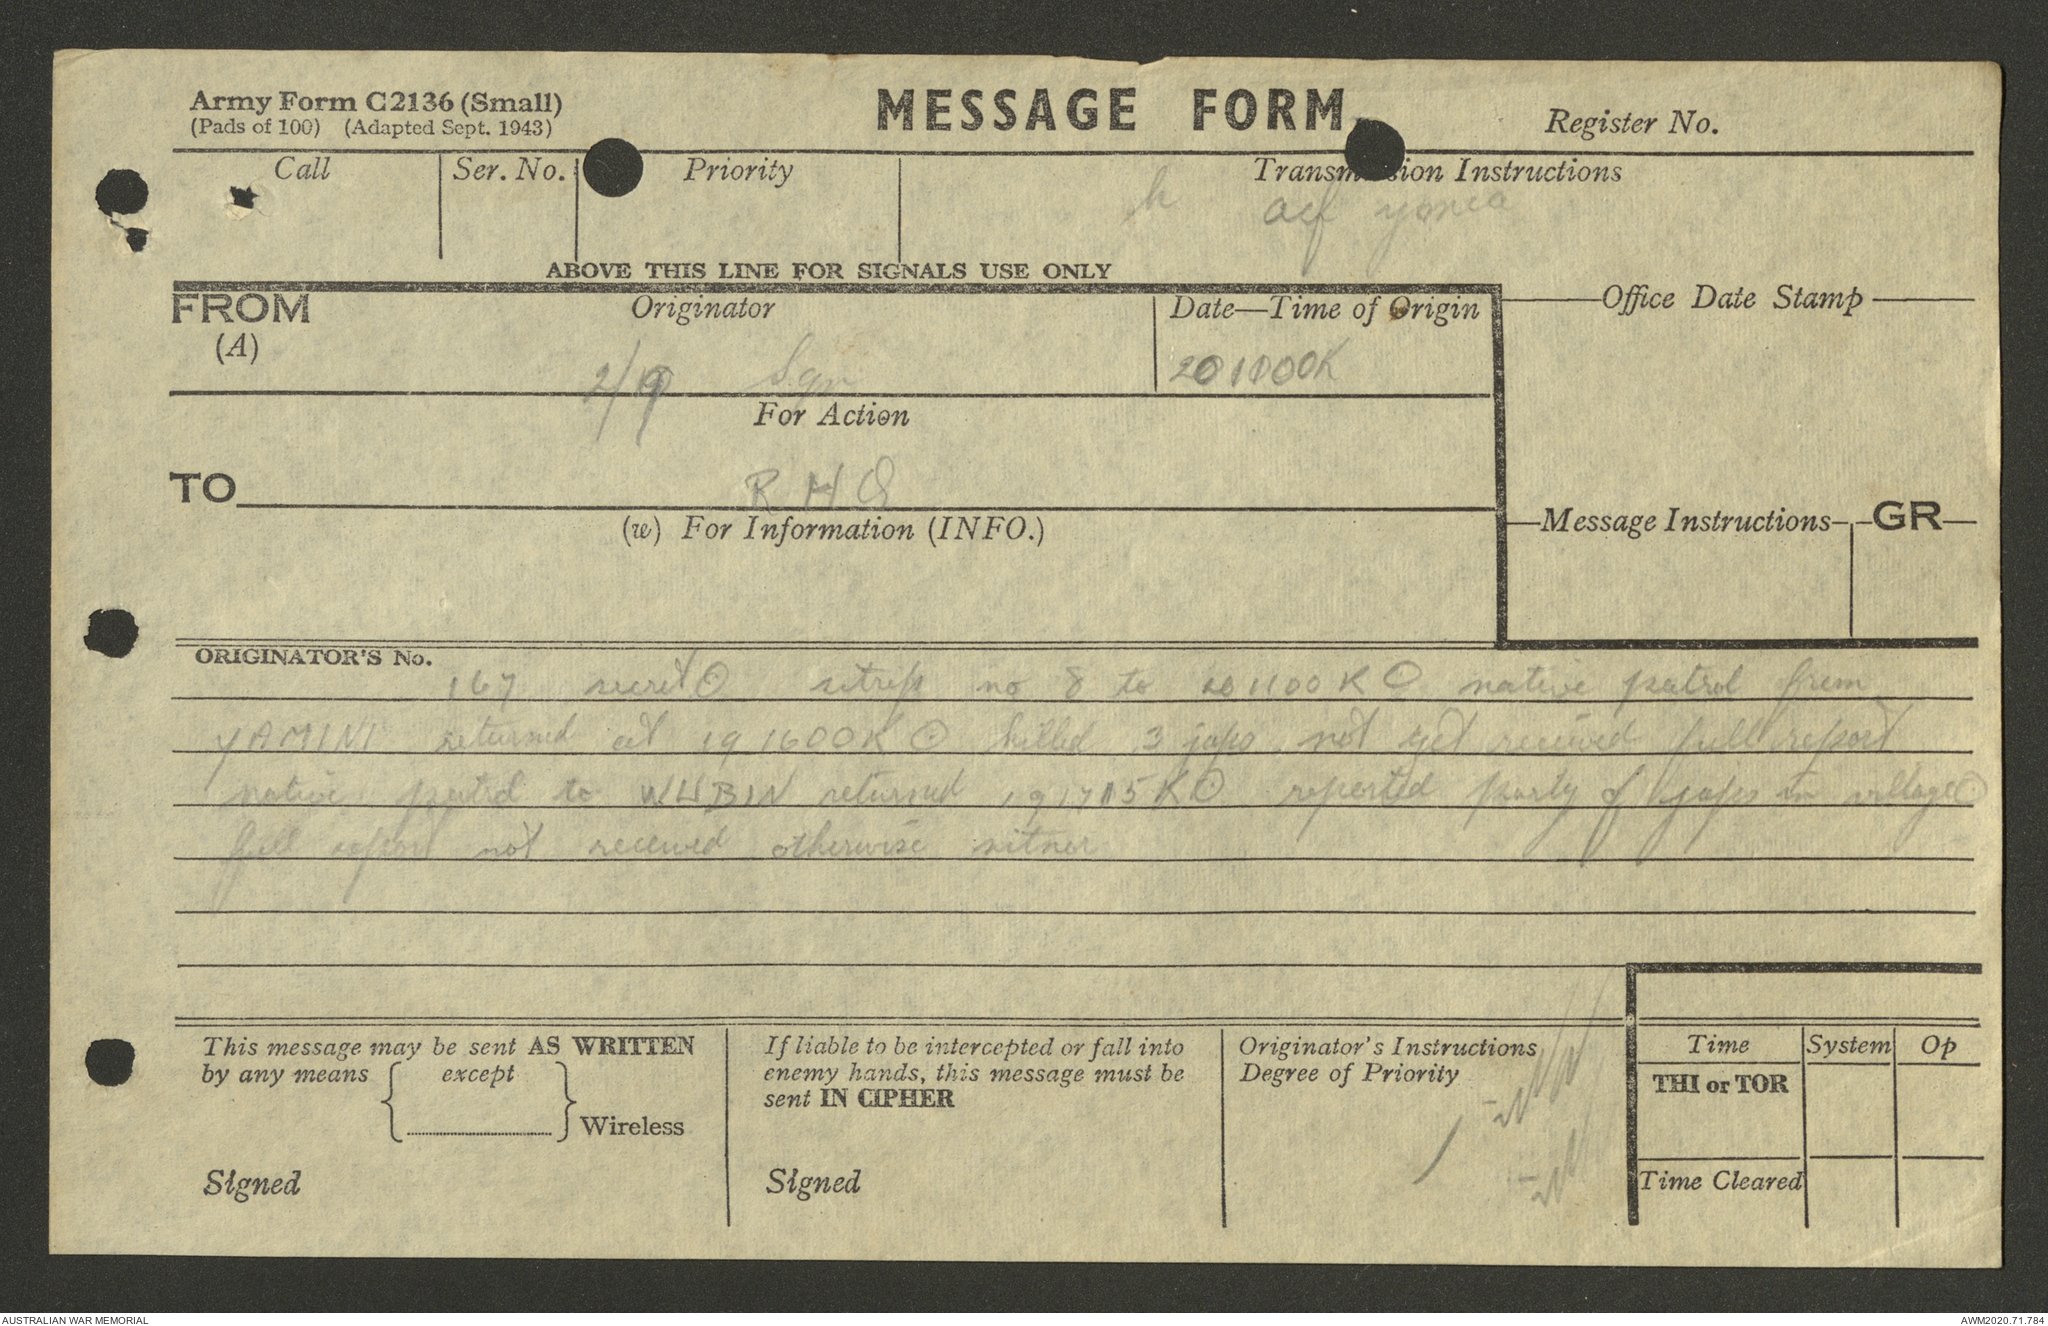 Army Form C2136 (Small)
(Pads of 100) (Adapted Sept. 1943)
MESSAGE FORM
Register No.
Call
Ser. No.
Priority
Transmission Instructions
ABOVE THIS LINE FOR SIGNALS USE ONLY
FROM
(A)
Originator
Date—Time of Origin
Office Date Stamp
2/9 Sqn
201100K
For Action
TO
R H Q
(w) For Information (INFO.)
Message Instructions
GR
ORIGINATOR'S No.
167 secret ⊙ sitrep no 8 to 201100K ⊙ native patrol from
YAMINI returned at 191600K ⊙ killed 3 japs not yet received full report
native patrol to WUBIN returned 191715K ⊙ reported party of japs in village ⊙
full report not received otherwise sitnor
This message may be sent AS WRITTEN
by any means
except
Wireless
Signed
If liable to be intercepted or fall into
enemy hands, this message must be
sent IN CIPHER
Signed
Originator's Instructions
Degree of Priority
Time
System
Op
THI or TOR
Time Cleared
AUSTRALIAN WAR MEMORIAL
AWM2020.71.784